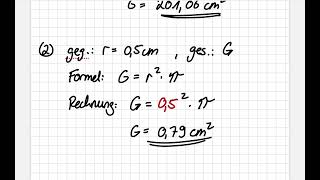 G = 201,06 cm²
(2) geg.: r = 0,5cm , ges.: G
Formel: G = r² · π
Rechnung: G = 0,5² · π
G = 0,79 cm²